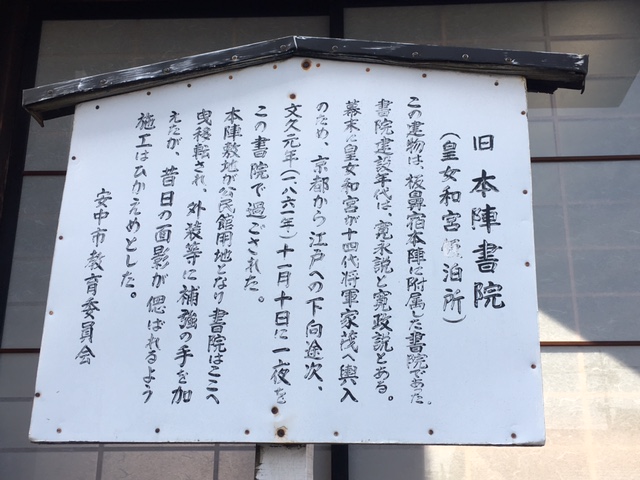 旧本陣書院
（皇女和宮宿泊所）
この建物は、板鼻宿本陣に附属した書院であった。
書院建設年代は、寛永説と寛政説とある。
幕末に皇女和宮が十四代将軍家茂へ輿入
のため、京都から江戸への下向途次、
文久元年（一八六一年）十一月十日に一夜を
この書院で過ごされた。
本陣敷地が公民館用地となり書院はここへ
曳移転され、外装等に補強の手を加
えたが、昔日の面影が偲ばれるよう
施工はひかえめとした。
安中市教育委員会